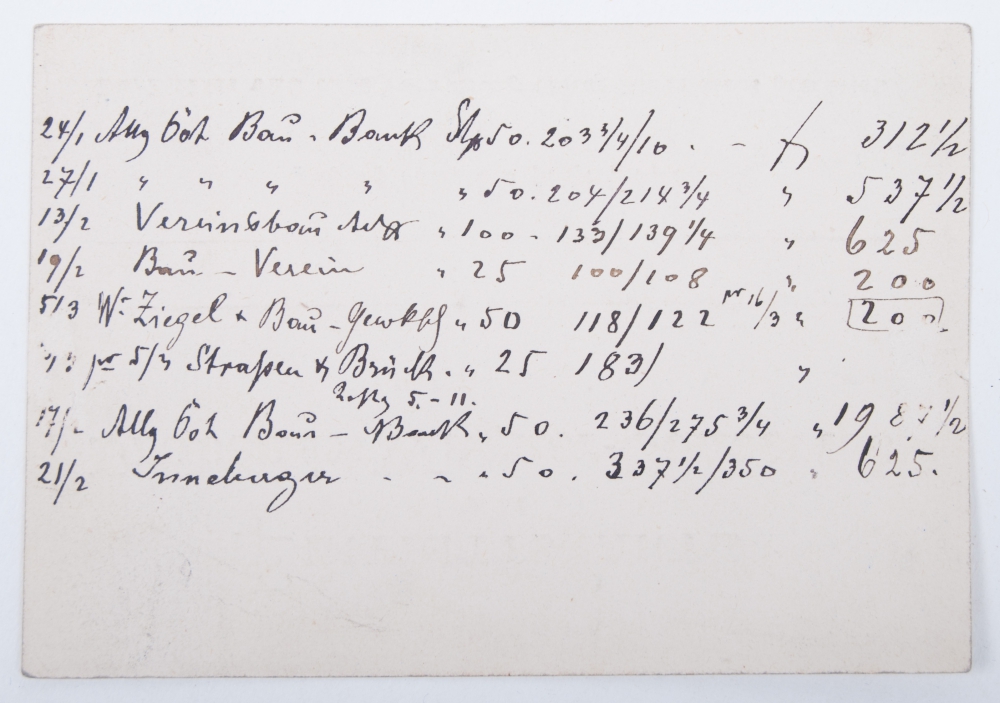 24/1 Allg Öst Bau - Bank Stp 50. 203 3/4/10 . - f 312 1/2
27/1 " " " " " 50. 204/214 3/4 " 537 1/2
13/2 Vereinsbau " 100 - 133/139 1/4 " 625
19/2 Bau - Verein " 25 100/108 " 200
5/3 Wr Ziegel & Bau - Gewksch " 50 118/122 pr 16/3 " 200.
pr 5/3 Straßen & Brück. " 25 183) "
5.-11.
17/2 Allg Öst Bau - Bank " 50. 236/275 3/4 " 1987 1/2
21/2 Inneberger - - " 50. 337 1/2/350 " 625.